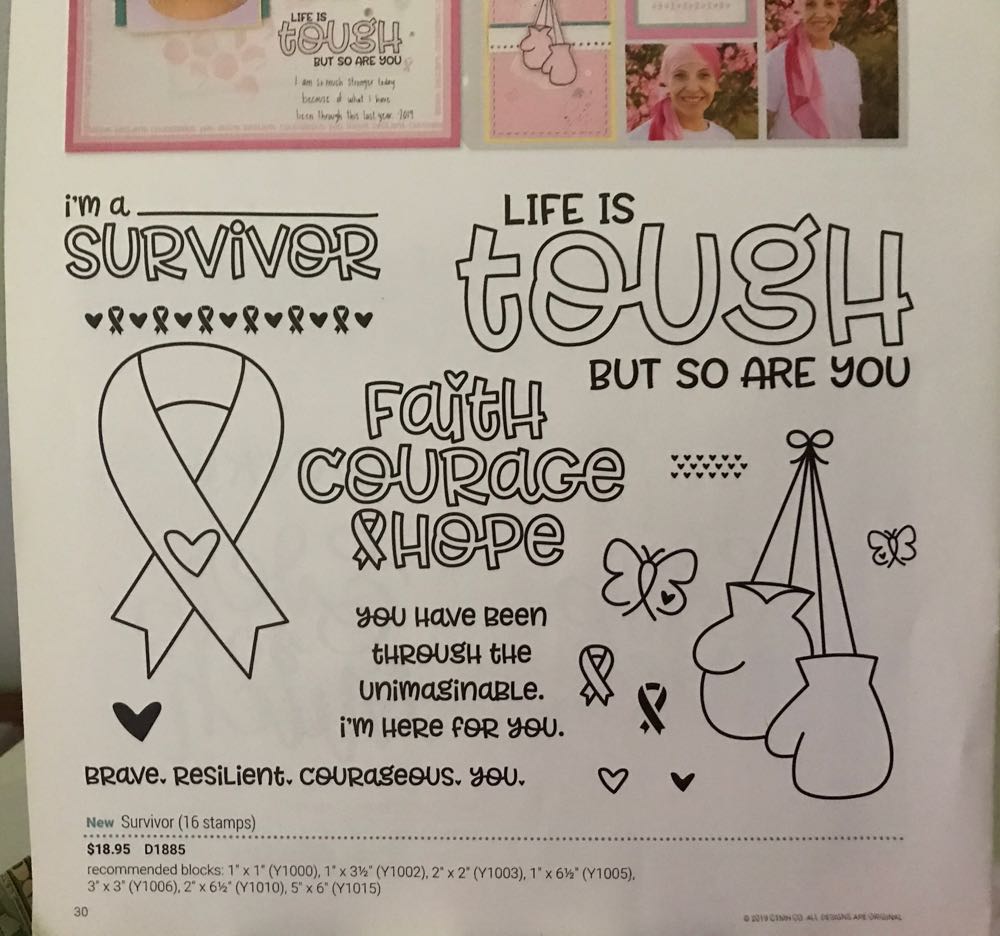 LIFE IS
tOUGH
BUT SO ARE YOU
I am so much stronger today
because of what I have
been through this last year. 2019
i'm a
SURViVOR
LIFE IS
tOUGH
BUT SO ARE YOU
Faith
COURaGe
&HOPe
YOU Have Been
tHROUGH tHe
UnimaGinaBLe.
i'm HeRe FOR YOU.
BRave. ResiLient. COURaGeOUs. YOU.
New Survivor (16 stamps)
$18.95 D1885
recommended blocks: 1" x 1" (Y1000), 1" x 3½" (Y1002), 2" x 2" (Y1003), 1" x 6½" (Y1005),
3" x 3" (Y1006), 2" x 6½" (Y1010), 5" x 6" (Y1015)
30
© 2019 CTMH CO. ALL DESIGNS ARE ORIGINAL